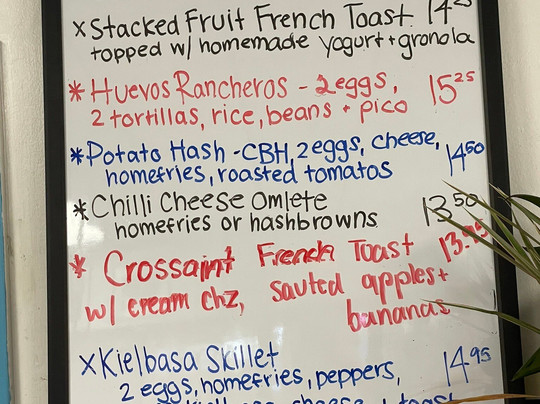 x Stacked Fruit French Toast
topped w/ homemade yogurt + granola
* Huevos Rancheros - 2 eggs, 15 25
2 tortillas, rice, beans + pico
* Potato Hash - CBH, 2 eggs, cheese, 14 50
homefries, roasted tomatos
* Chilli Cheese Omlete 13 50
homefries or hashbrowns
* Crossaint French Toast
w/ cream chz, sauted apples +
bananas
x Kielbasa Skillet 14 95
2 eggs, homefries, peppers,